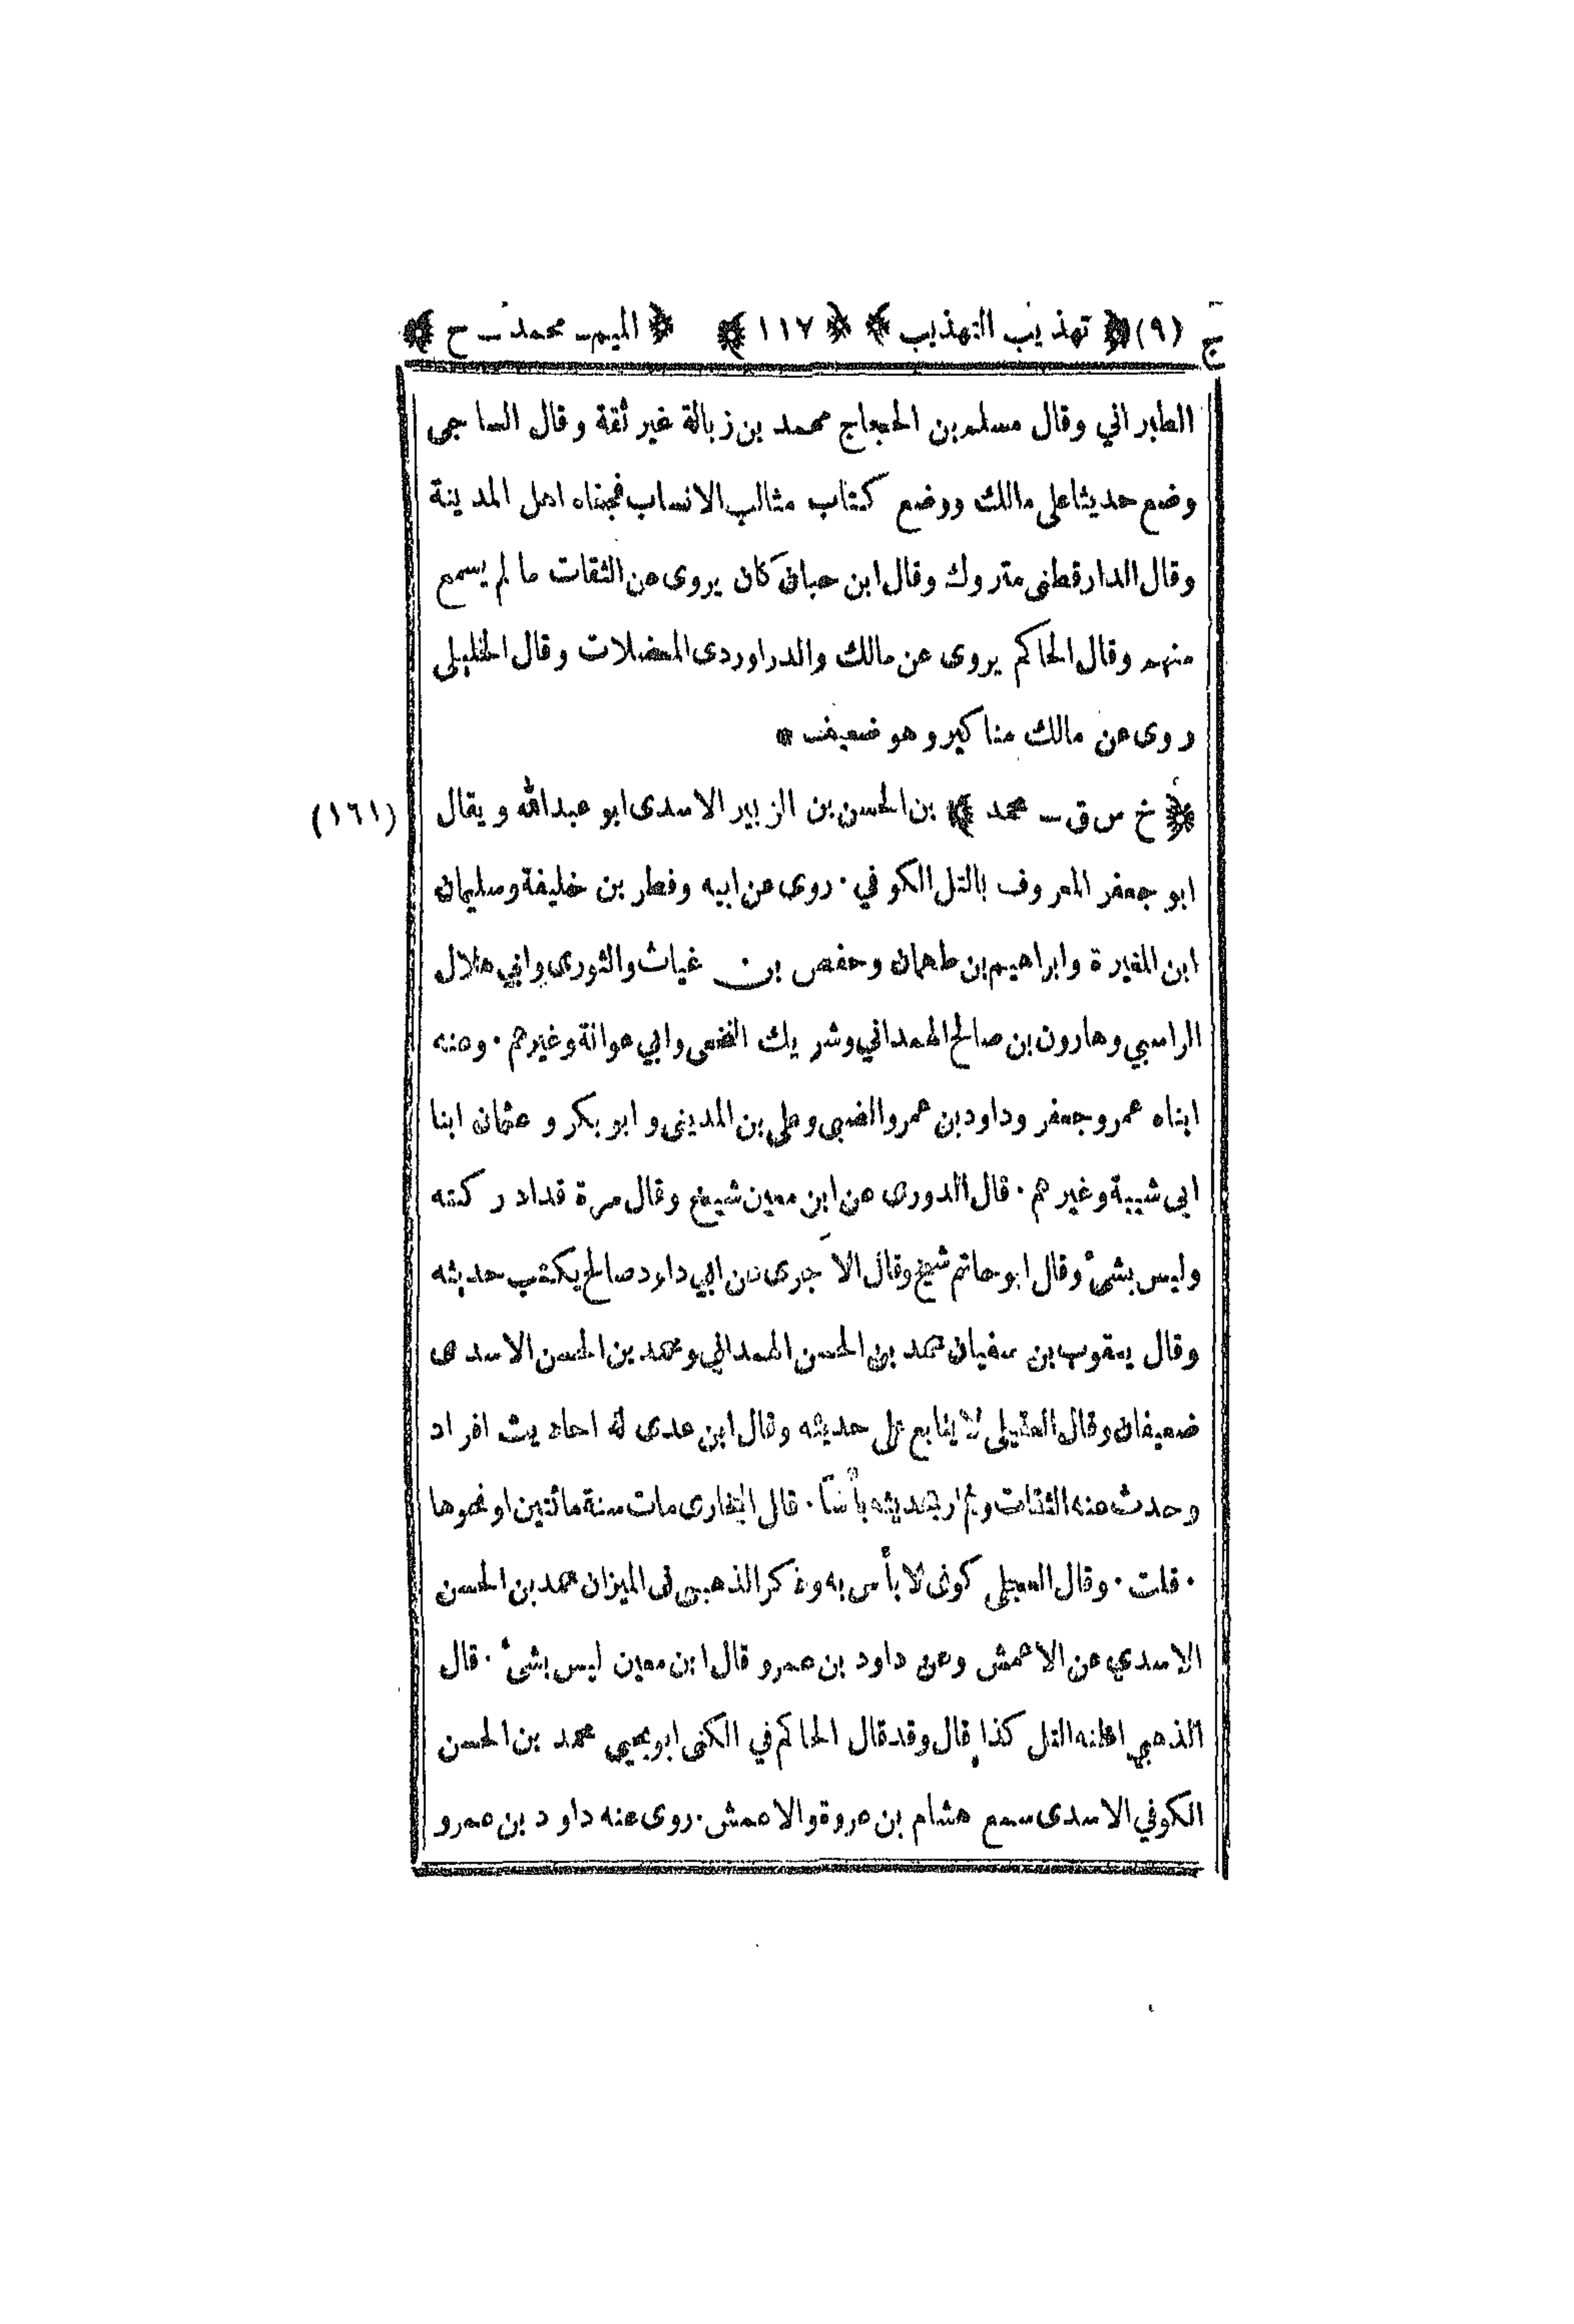 ج (٩) ﴿ تهذيب التهذيب ﴾ ﴿ ١١٧ ﴾ ﴿ الميم ـ محمد ـ ح ﴾
الطبراني وقال مسلم بن الحجاج محمد بن زبالة غير ثقة وقال الساجى
وضع حديثا على مالك ووضع كتاب مثالب الانساب فجفاه اهل المدينة
وقال الدارقطنى متروك وقال ابن حبان كان يروى عن الثقات ما لم يسمع
منهم وقال الحاكم يروى عن مالك والدراوردى المعضلات وقال الخليلى
روى عن مالك مناكير وهو ضعيف *
﴿ خ س ق ـ محمد ﴾ بن الحسن بن الزبير الاسدى ابو عبدالله ويقال (١٦١)
ابو جعفر المعروف بالتل الكوفي · روى عن ابيه وفطر بن خليفة وسليمان
ابن المغيرة وابراهيم بن طهمان وحفص بن غياث والثورى وابي هلال
الراسبي وهارون بن صالح الهمداني وشريك النخعى وابي عوانة وغيرهم · وعنه
ابناه عمر وجعفر وداود بن عمرو الضبى وعلى بن المدينى وابو بكر وعثمان ابنا
ابى شيبة وغيرهم · قال الدورى عن ابن معين شيخ وقال مرة قد ادركته
وليس بشئ وقال ابو حاتم شيخ وقال الآجرى عن ابي داود صالح يكتب حديثه
وقال يعقوب بن سفيان محمد بن الحسن الهمداني ومحمد بن الحسن الاسدى
ضعيفان وقال العقيلى لا يتابع على حديثه وقال ابن عدى له احاديث افراد
وحدث عنه الثقات ولم ار بحديثه بأسًا · قال البخارى مات سنة مائتين او نحوها
· قلت · وقال العجلى كوفى لا بأس به وذكر الذهبى فى الميزان محمد بن الحسن
الاسدي عن الاعمش وعن داود بن عمرو قال ابن معين ليس بشئ · قال
الذهبي اظنه التل كذا قال وقد قال الحاكم في الكنى ابو يحيى محمد بن الحسن
الكوفي الاسدى سمع هشام بن عروة والاعمش · روى عنه داود بن عمرو